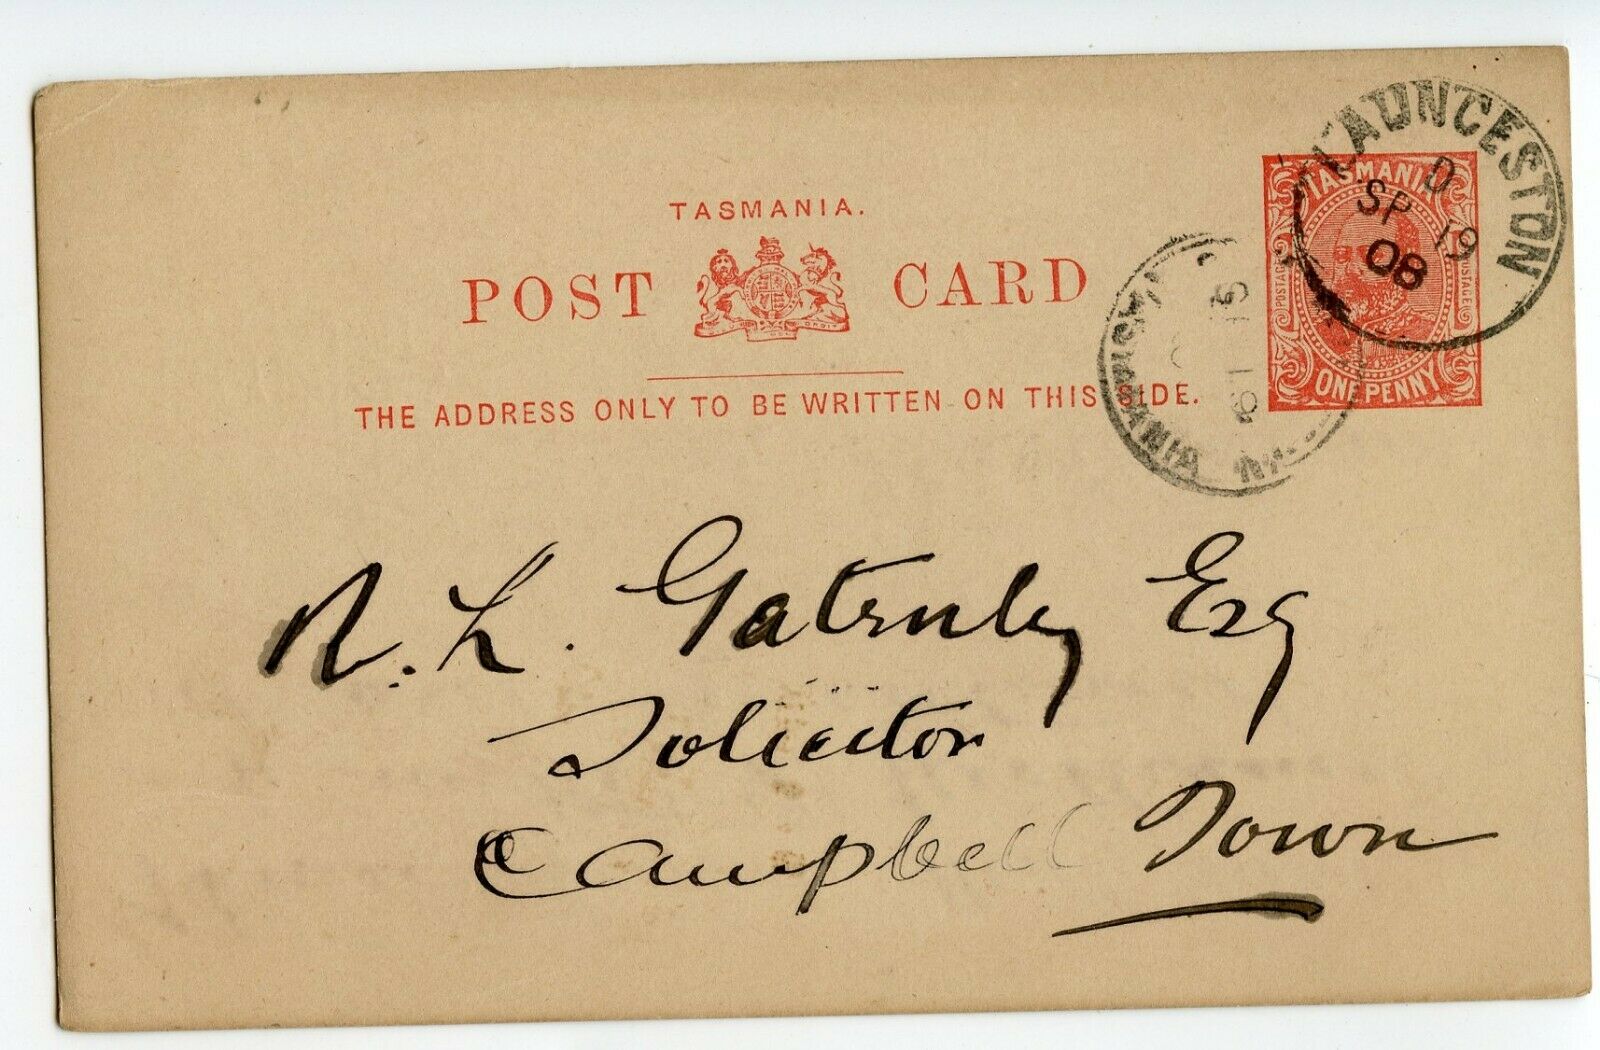 TASMANIA.
POST CARD
THE ADDRESS ONLY TO BE WRITTEN ON THIS SIDE.
TASMANIA
POSTAGE POSTAGE
ONE PENNY
LAUNCESTON
D
SP 19
08
TASMANIA
R. L. Gatenby Esq
Solicitor
Campbell Town